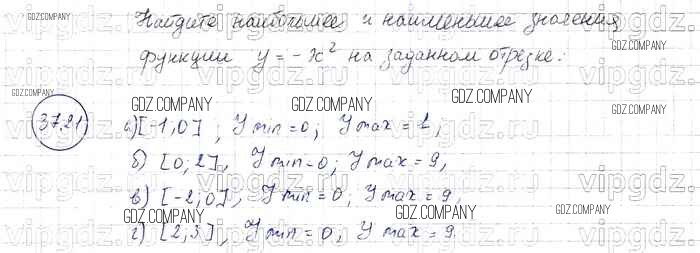 Найдите наибольшее и наименьшее значения
GDZ.COMPANY
функции y = -x² на заданном отрезке:
vipgdz.ru vipgdz.ru vipgdz.ru vipgdz.
GDZ.COMPANY GDZ.COMPANY GDZ.COMPANY
37.21 а) [-1;0], y min = 0; y max = 1,
б) [0;2], y min = 0; y max = 9,
в) [-2;0], y min = 0; y max = 9,
GDZ.COMPANY GDZ.COMPANY GDZ.COMPANY
г) [2;3], y min = 0, y max = 9.
vipgdz.ru vipgdz.ru vipgdz.ru vipgdz.